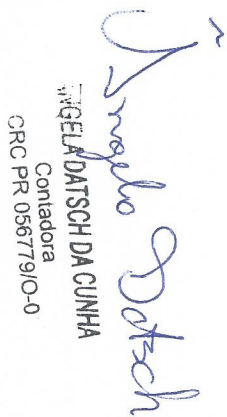 Ângela Datsch
ÂNGELA DATSCH DA CUNHA
Contadora
CRC PR 056779/O-0